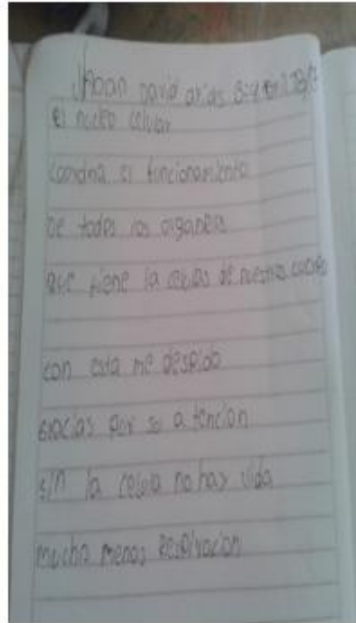 Jhoan David arias
El nucleo celular
coordina el funcionamiento
De todos los organelos
que tiene la celulas de nuestro cuerpo
con esta me despido
Gracias por su atencion
sin la celula no hay vida
mucho menos Respiracion